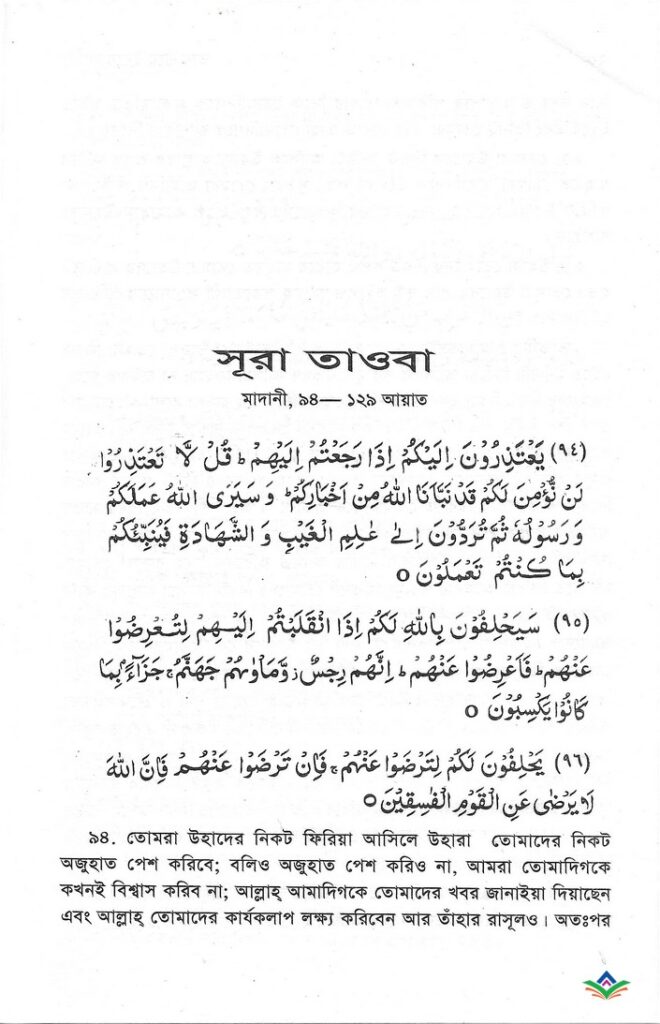 সূরা তাওবা
মাদানী, ৯৪— ১২৯ আয়াত
(٩٤) يَعْتَذِرُوْنَ اِلَيْكُمْ اِذَا رَجَعْتُمْ اِلَيْهِمْ ؕ قُلْ لَّا تَعْتَذِرُوْا
لَنْ نُّؤْمِنَ لَكُمْ قَدْ نَبَّاَنَا اللهُ مِنْ اَخْبَارِكُمْ ؕ وَ سَيَرَى اللهُ عَمَلَكُمْ
وَ رَسُوْلُهٗ ثُمَّ تُرَدُّوْنَ اِلٰى عٰلِمِ الْغَيْبِ وَ الشَّهَادَةِ فَيُنَبِّئُكُمْ
بِمَا كُنْتُمْ تَعْمَلُوْنَ ○
(٩٥) سَيَحْلِفُوْنَ بِاللهِ لَكُمْ اِذَا انْقَلَبْتُمْ اِلَيْهِمْ لِتُعْرِضُوْا
عَنْهُمْ ؕ فَاَعْرِضُوْا عَنْهُمْ ؕ اِنَّهُمْ رِجْسٌ ز وَّمَاْوٰىهُمْ جَهَنَّمُ ۚ جَزَآءًۢ بِمَا
كَانُوْا يَكْسِبُوْنَ ○
(٩٦) يَحْلِفُوْنَ لَكُمْ لِتَرْضَوْا عَنْهُمْ ۚ فَاِنْ تَرْضَوْا عَنْهُمْ فَاِنَّ اللهَ
لَا يَرْضٰى عَنِ الْقَوْمِ الْفٰسِقِيْنَ ○
৯৪. তোমরা উহাদের নিকট ফিরিয়া আসিলে উহারা তোমাদের নিকট
অজুহাত পেশ করিবে; বলিও অজুহাত পেশ করিও না, আমরা তোমাদিগকে
কখনই বিশ্বাস করিব না; আল্লাহ্ আমাদিগকে তোমাদের খবর জানাইয়া দিয়াছেন
এবং আল্লাহ্ তোমাদের কার্যকলাপ লক্ষ্য করিবেন আর তাঁহার রাসূলও। অতঃপর